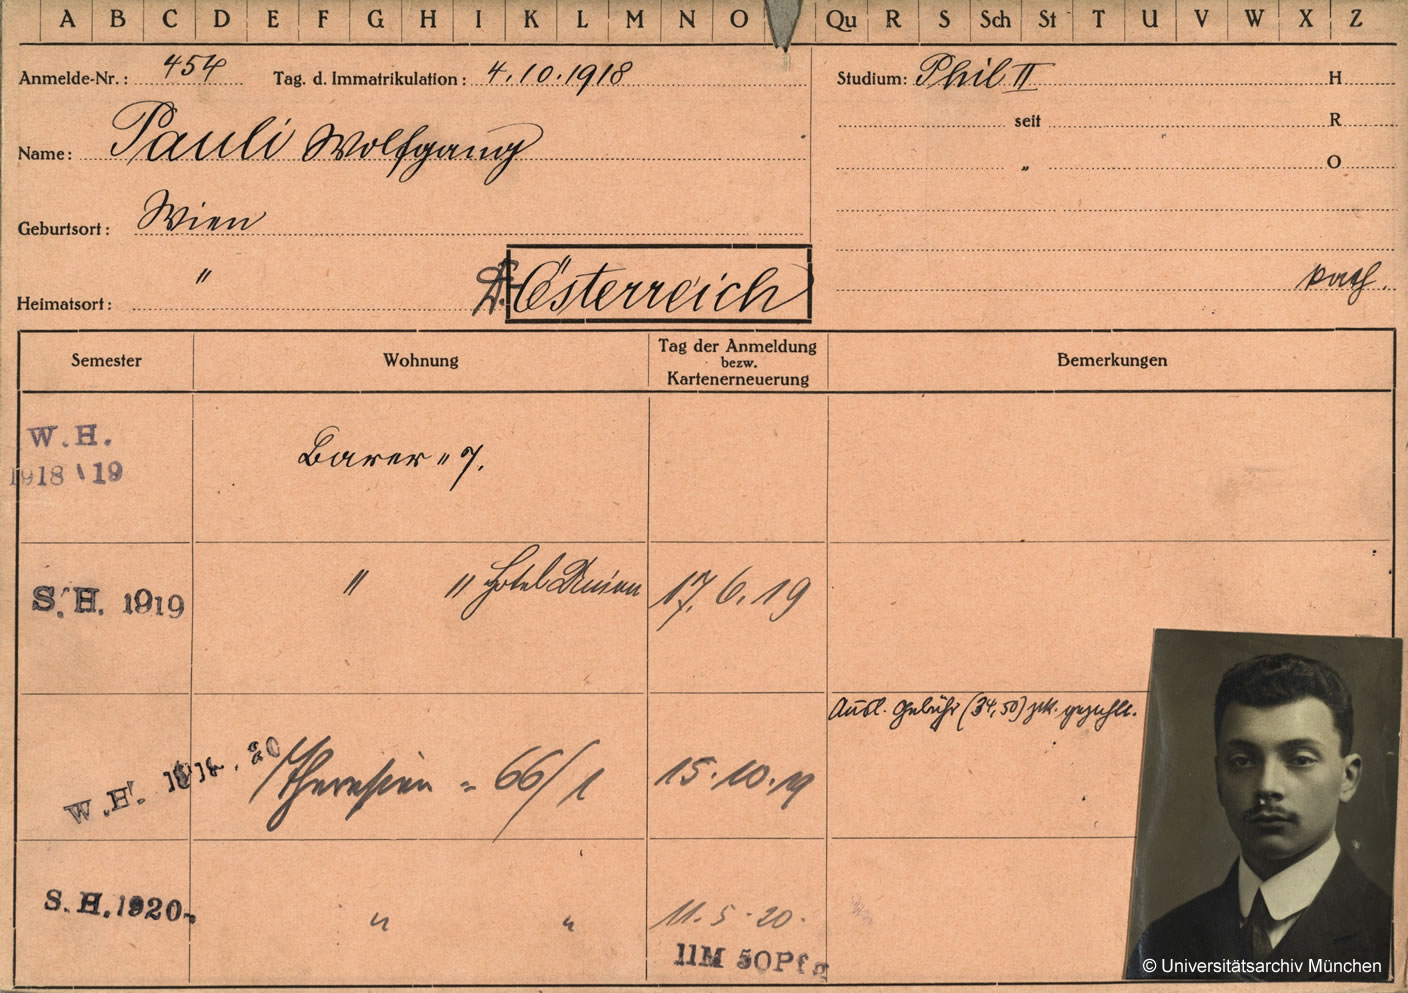 A B C D E F G H I K L M N O Qu R S Sch St T U V W X Z
Anmelde-Nr.: 454 Tag. d. Immatrikulation: 4.10.1918 Studium: Phil II H
seit R
Name: Pauli Wolfgang
" O
Geburtsort: Wien
Heimatsort: " Österreich kath.
Semester Wohnung Tag der Anmeldung bezw. Kartenerneuerung Bemerkungen
W.H. 1918/19 Barer " 7.
S.H. 1919 " " Hotel Union 17.6.19
Ausl. Gebühr (34,50) gezahlt.
W.H. 1919.20 Theresien = 66/1 15.10.19
S.H. 1920. " " 11.5.20.
11M 50Pfg
© Universitätsarchiv München